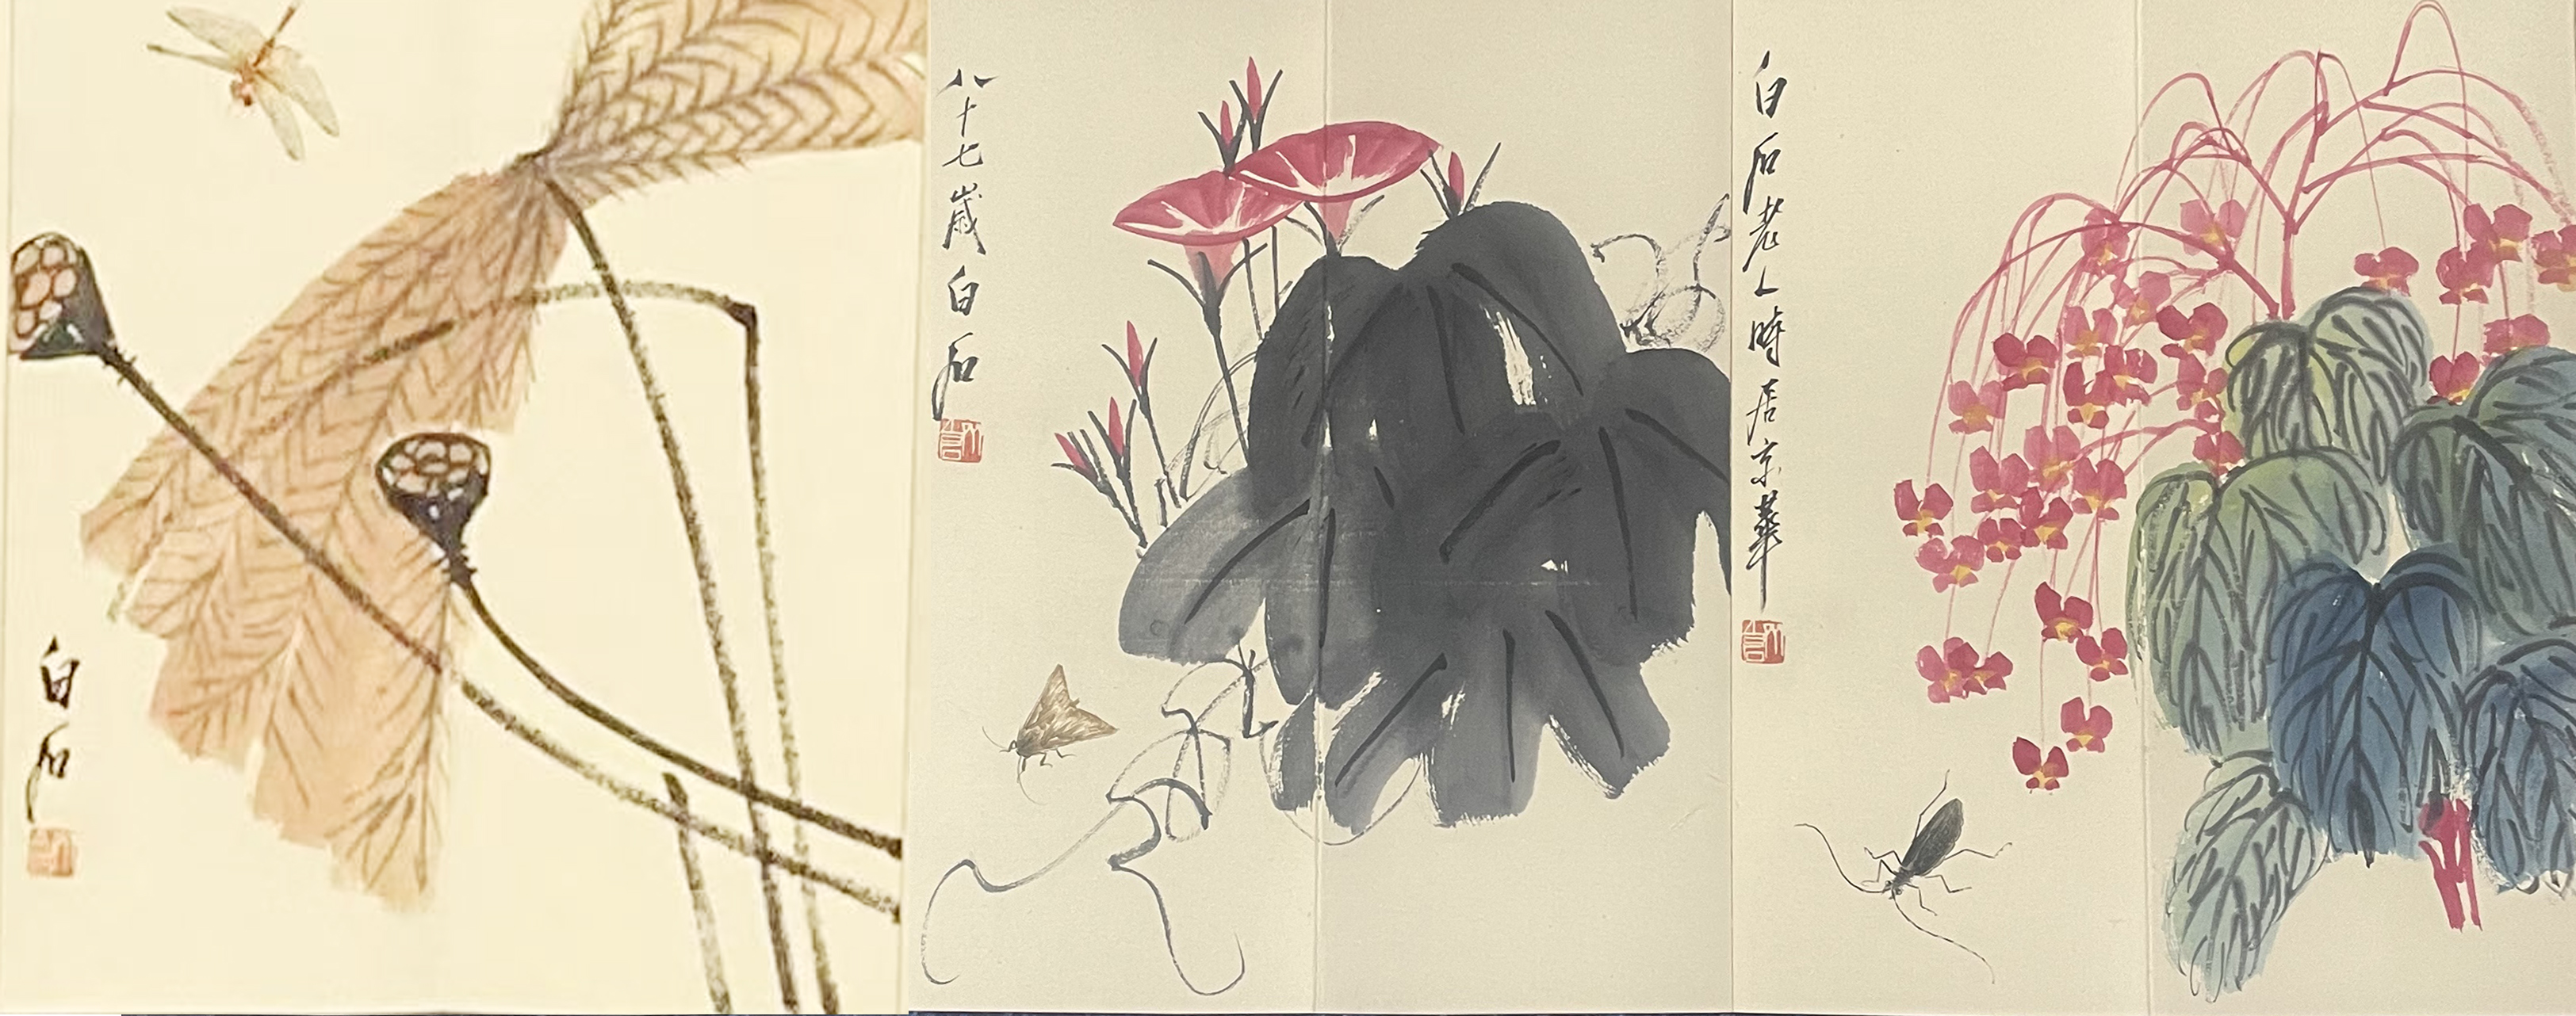 白石
八十七歲白石
白石老人時居京華